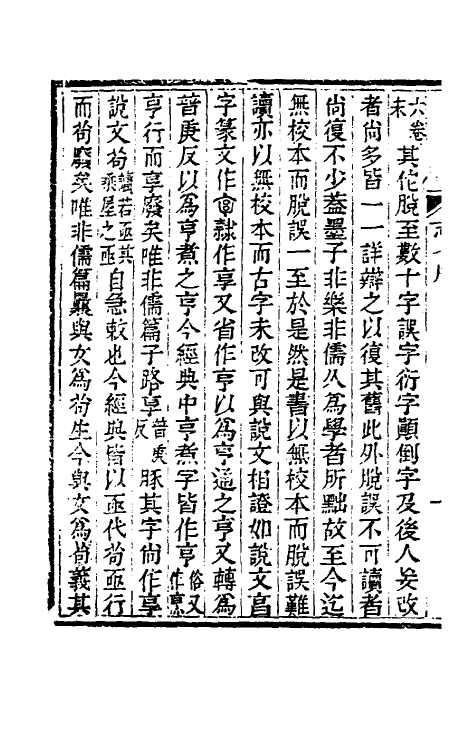 六卷末其佗脫至數十字誤字衍字顛倒字及後人妄改
者尚多皆一一詳辯之以復其舊此外脫誤不可讀者
尚復不少葢墨子非樂非儒久為學者所黜故至今迄
無校本而脫誤一至於是然是書以無校本而脫誤難
讀亦以無校本而古字未改可與說文相證如說文𠅠
字篆文作𠅠隸作享又省作亨以為亨通之亨又轉為
普庚反以為亨煮之亨今經典中亨煮字皆作亨俗又作烹
亨行而享廢矣唯非儒篇子路享普庚反豚其字尚作享
說文茍讀若亟其乘屋之亟自急敕也今經典皆以亟代茍亟行
而茍廢矣唯非儒篇曩與女為茍生今與女為茍義其